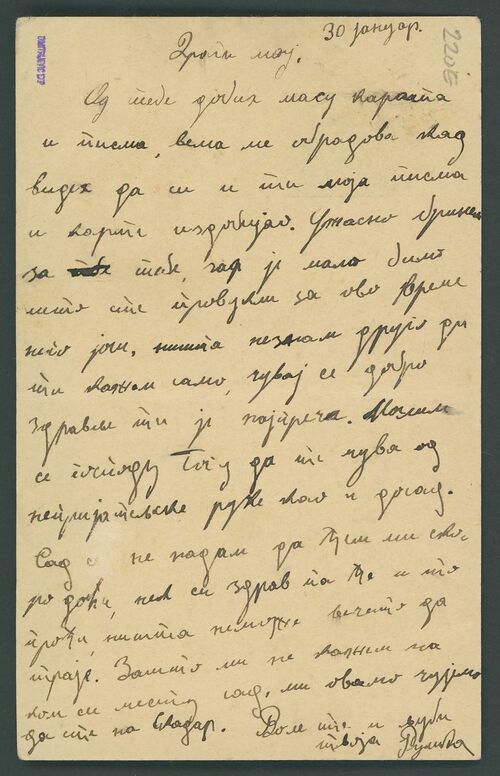 30 јануар.
2205
Драги мој.
Од тебе добих масу карата
и писма, вема ме обрадова кад
видех да си и ти моја писма
и карте издобијао. Ужасно бринем
за тебе, зар је мало било
што сте провели за ово време
него још, ништа незнам друго да
ти кажем само, чувај се добро
здравље ти је најпреча. Молим
се господу Богу да те чува од
непријатељске руке као и досад.
Сад се не надам да ћеш ми ско-
ро доћи, нек си здрав па ће и то
проћи, ништа неможе вечето да
траје. Зашто ми не кажеш на
ком си месту сад, ми овамо чујемо
да сте на Скадар. Воле те и љуби
твоја